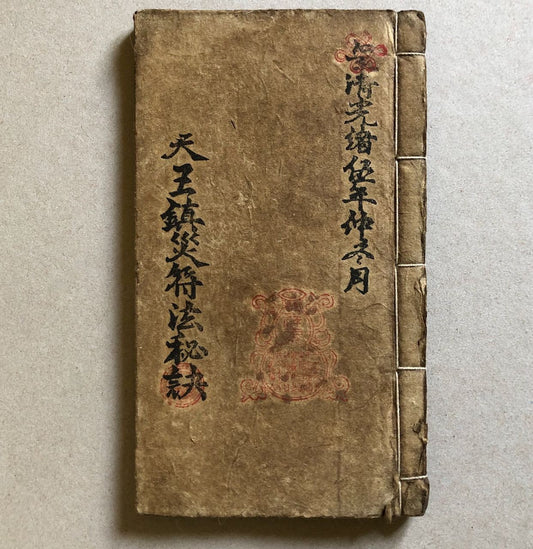 皇清光緒伍年仲冬月
天王鎮災符法秘訣